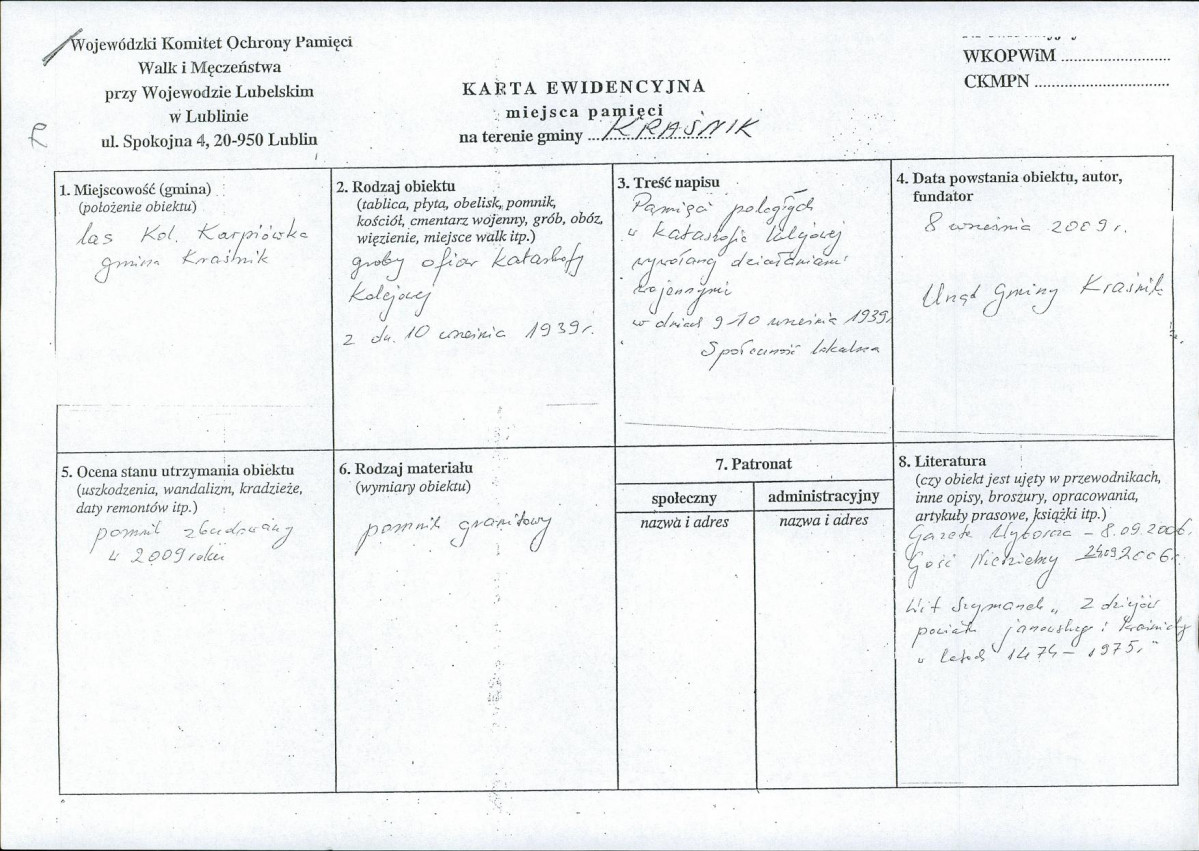 Wojewódzki Komitet Ochrony Pamięci
Walk i Męczeństwa
przy Wojewodzie Lubelskim
w Lublinie
ul. Spokojna 4, 20-950 Lublin
KARTA EWIDENCYJNA
miejsca pamięci
na terenie gminy KRAŚNIK
WKOPWiM
CKMPN
1. Miejscowość (gmina)
(położenie obiektu)
las Kol. Karpiówka
gmina Kraśnik
2. Rodzaj obiektu
(tablica, płyta, obelisk, pomnik,
kościół, cmentarz wojenny, grób, obóz,
więzienie, miejsce walk itp.)
groby ofiar katastrofy
kolejowej
z dn. 10 września 1939 r.
3. Treść napisu
Pamięci poległych
w katastrofie kolejowej
wywołanej działaniami
wojennymi
w dniach 9-10 września 1939
Społeczność lokalna
4. Data powstania obiektu, autor,
fundator
8 września 2009 r.
Urząd Gminy Kraśnik
5. Ocena stanu utrzymania obiektu
(uszkodzenia, wandalizm, kradzieże,
daty remontów itp.)
pomnik zbudowany
w 2009 roku
6. Rodzaj materiału
(wymiary obiektu)
pomnik granitowy
7. Patronat
społeczny
nazwa i adres
administracyjny
nazwa i adres
8. Literatura
(czy obiekt jest ujęty w przewodnikach,
inne opisy, broszury, opracowania,
artykuły prasowe, książki itp.)
Gazeta Wyborcza - 8.09.2006.
Gość Niedzielny 24.09 2006 r.
Wit Szymanek „Z dziejów
powiatu janowskiego i kraśnickiego
w latach 1474 - 1975."